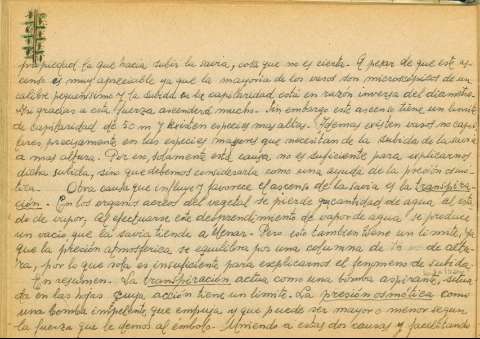 pia pequeñ, la que hacía subir la savia, cosa que no es cierta. A pesar de que este as-
censo es muy apreciable ya que la mayoría de los vasos son microscópicos de un
calibre pequeñísimo y la subida de la capilaridad está en razón inversa del diametro.
gracias a esta fuerza ascenderá mucho. Sin embargo este ascenso tiene un limite
de capilaridad de 50 m y existen especies mas altas. Ademas existen vasos no capi-
lares precisamente en las especies mayores que necesitan de la subida de la savia
a mas altura. Por eso, solamente esta causa no es suficiente para explicarnos
dicha subida, sino que debemos considerarla como una ayuda de la presión osmó-
tica. Otra causa que influye y favorece el ascenso de la savia es la transpira-
ción. En los organos aereos del vegetal se pierde cantidades de agua al esta-
do de vapor, al efectuarse este desprendimiento de vapor de agua se produce
un vacío que la savia tiende a llenar. Pero esto tambien tiene un limite, ya
que la presión atmosferica se equilibra por una columna de de altu-
ra, por lo que nofa es insuficiente para explicarnos el fenomeno de subida
En resumen. La transpiración actua como una bomba aspirante, situa-
da en las hojas cuya acción tiene un limite. La presión osmótica como
una bomba impelente, que empuja y que puede ser mayor o menor segun
la fuerza que le demos al émbolo. Uniendo a estas dos causas y facilitando